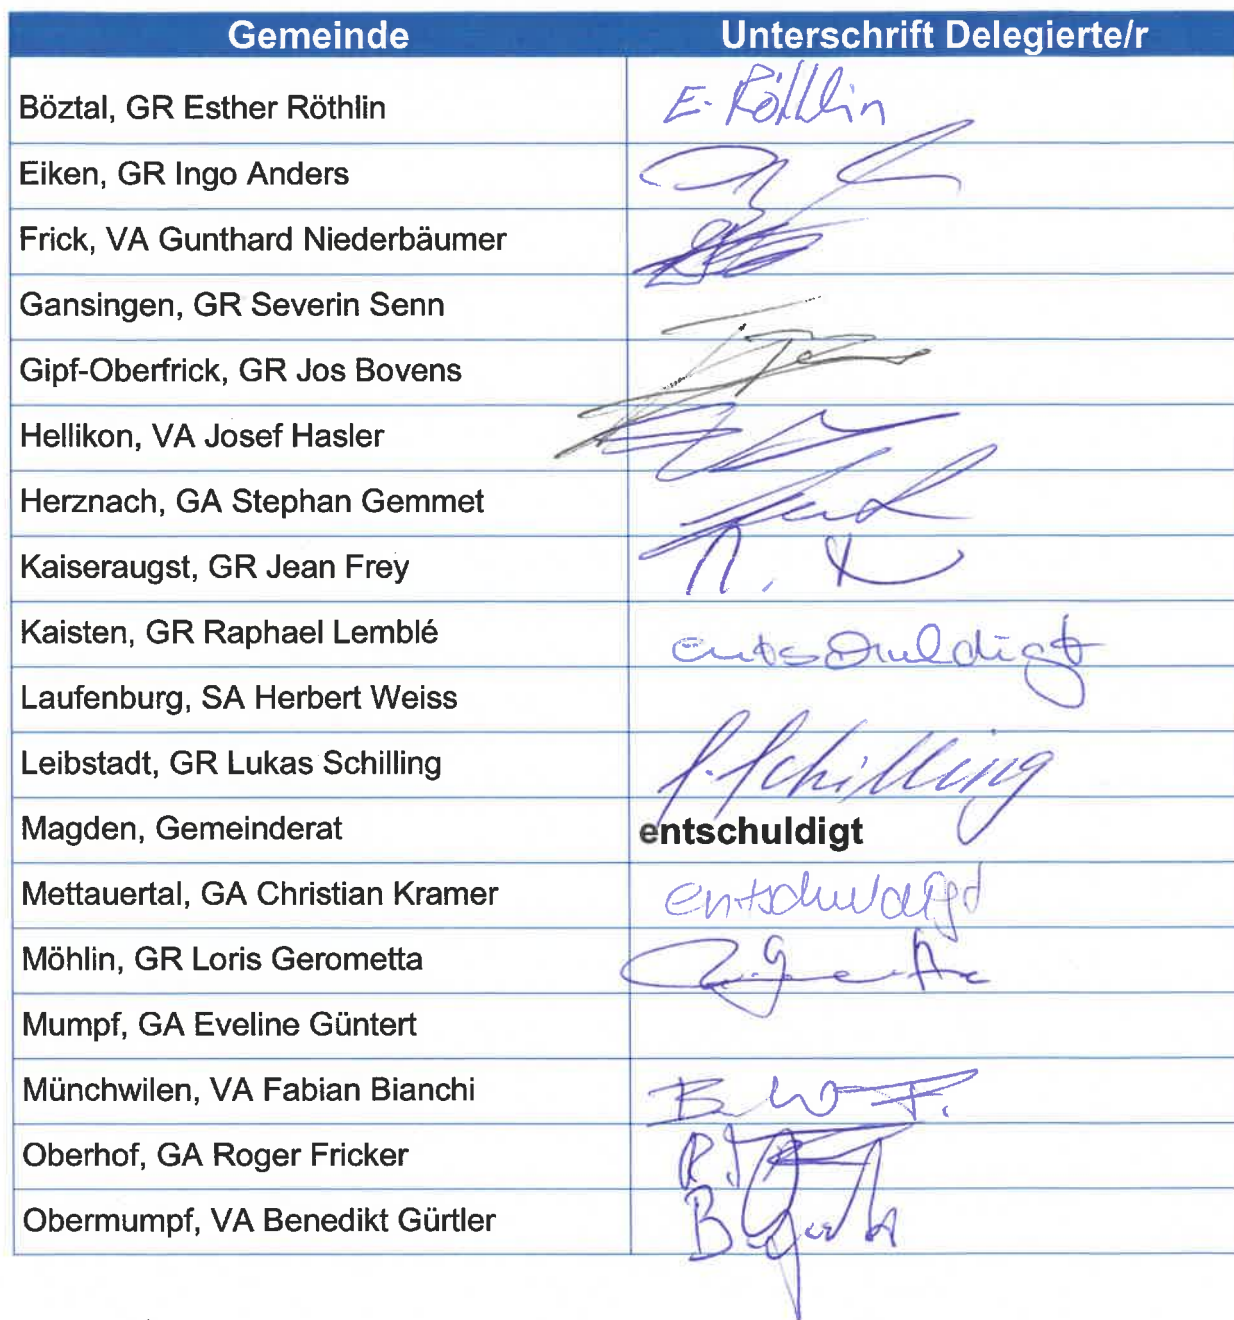 Gemeinde Unterschrift Delegierte/r
Böztal, GR Esther Röthlin E. Röthlin
Eiken, GR Ingo Anders
Frick, VA Gunthard Niederbäumer
Gansingen, GR Severin Senn
Gipf-Oberfrick, GR Jos Bovens
Hellikon, VA Josef Hasler
Herznach, GA Stephan Gemmet
Kaiseraugst, GR Jean Frey
Kaisten, GR Raphael Lemblé entschuldigt
Laufenburg, SA Herbert Weiss
Leibstadt, GR Lukas Schilling Schilling
Magden, Gemeinderat entschuldigt
Mettauertal, GA Christian Kramer entschuldigt
Möhlin, GR Loris Gerometta
Mumpf, GA Eveline Güntert
Münchwilen, VA Fabian Bianchi
Oberhof, GA Roger Fricker
Obermumpf, VA Benedikt Gürtler